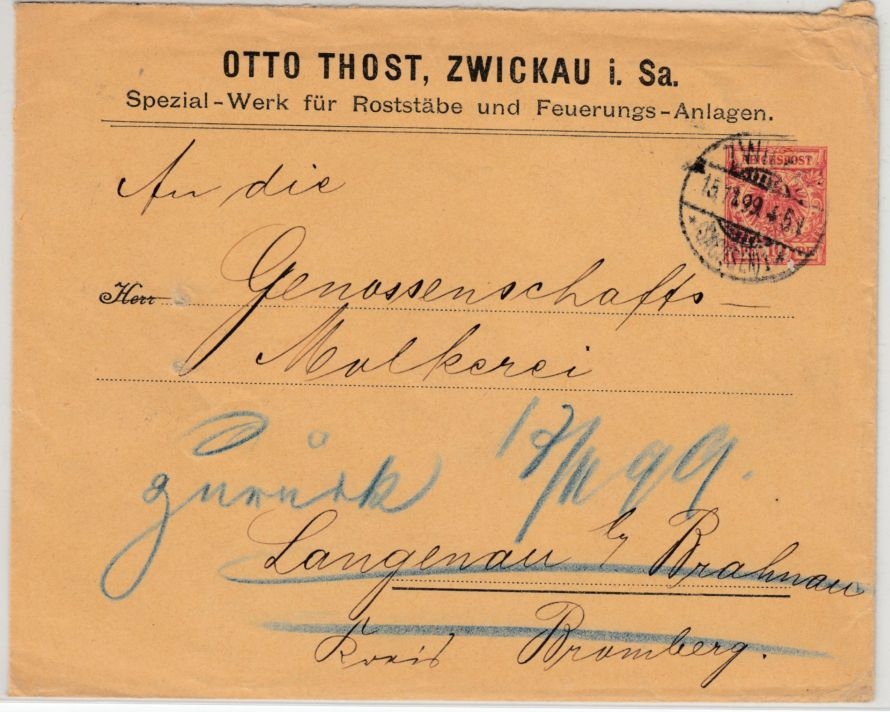 OTTO THOST, ZWICKAU i. Sa.
Spezial-Werk für Roststäbe und Feuerungs-Anlagen.
REICHSPOST
An die
Herr
Genossenschafts-
Molkerei
zurück 17/11 99.
Langenau b/ Brahnau
Kreis Bromberg.